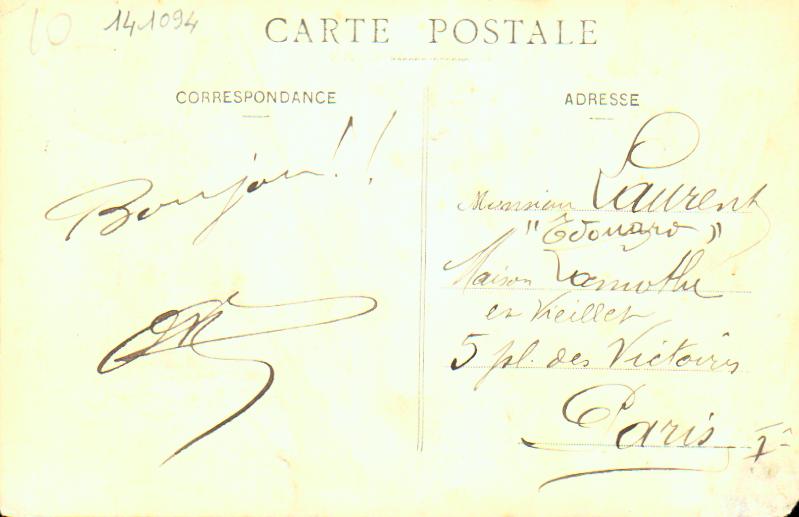 10
141094
CARTE POSTALE
CORRESPONDANCE
ADRESSE
Bonjour!!
Monsieur Laurent
"Edouard"
Maison Lamothe
et Vieillet
5 pl. des Victoires
Paris